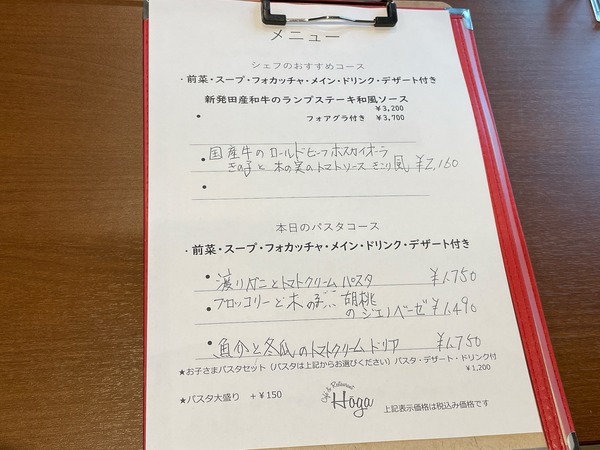 メニュー
シェフのおすすめコース
・前菜・スープ・フォカッチャ・メイン・ドリンク・デザート付き
新発田産和牛のランプステーキ和風ソース
¥3,200
• フォアグラ付き ¥3,700
• 国産牛のロールドビーフボスカイオーラ
きの子と木の実のトマトソース きこり風 ¥2,160
•
本日のパスタコース
・前菜・スープ・フォカッチャ・メイン・ドリンク・デザート付き
• 渡りガニとトマトクリームパスタ ¥1,750
• ブロッコリーと木の子 胡桃
のジェノベーゼ ¥1,490
• 魚介と冬瓜のトマトクリームドリア ¥1,750
★お子さまパスタセット（パスタは上記からお選びください）パスタ・デザート・ドリンク付
¥1,200
★パスタ大盛り ＋¥150
Cafe & Restaurant
Hoga
上記表示価格は税込み価格です